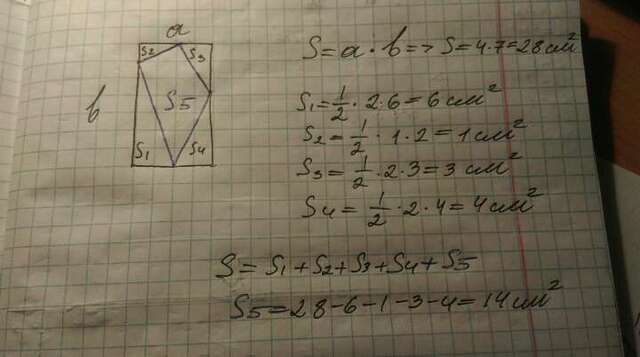 a
S2
S3
b
S5
S1
S4
S = a · b => S = 4·7=28 см²
S1 = 1/2 · 2·6 = 6 см²
S2 = 1/2 · 1 · 2 = 1 см²
S3 = 1/2 · 2 · 3 = 3 см²
S4 = 1/2 · 2 · 4 = 4 см²
S = S1 + S2 + S3 + S4 + S5
S5 = 28 - 6 - 1 - 3 - 4 = 14 см²